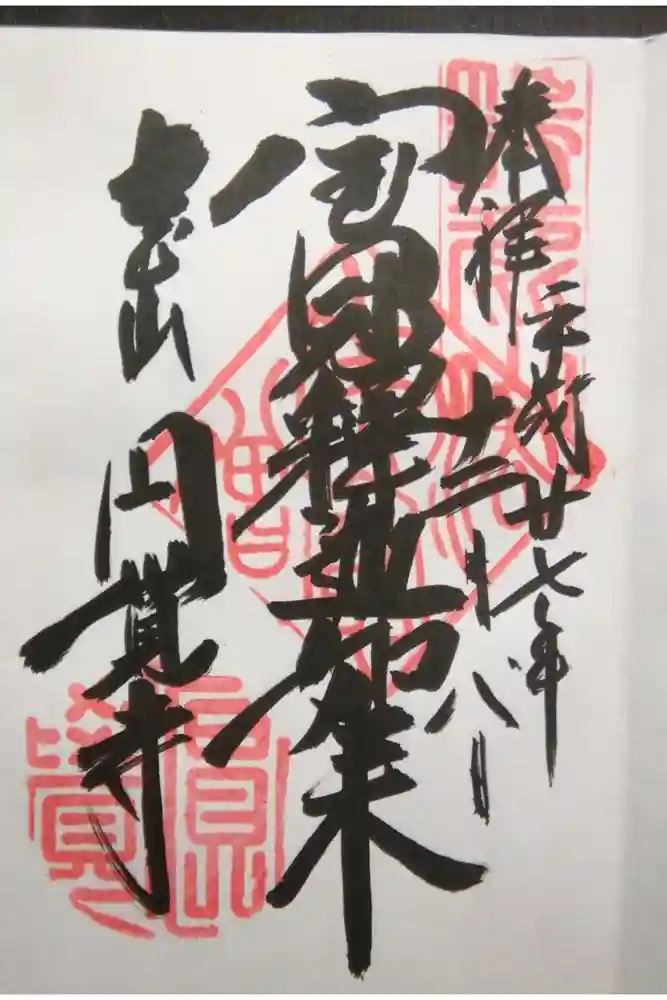 奉拝 平成廿七年
十二月八日
宝冠釈迦如来
大本山
円覚寺